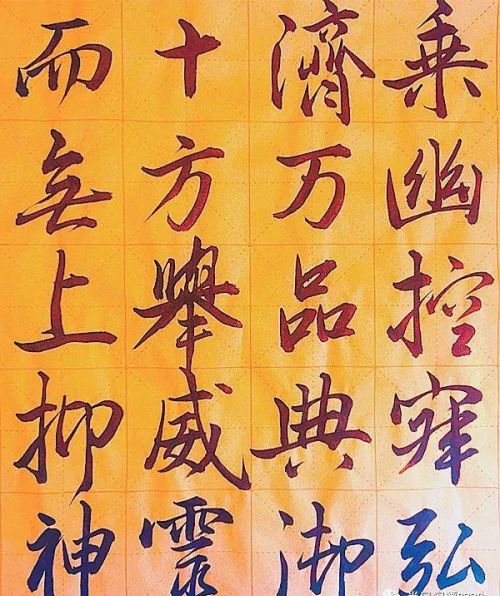 乘幽控寂弘
濟万品典御
十方舉威靈
而無上抑神